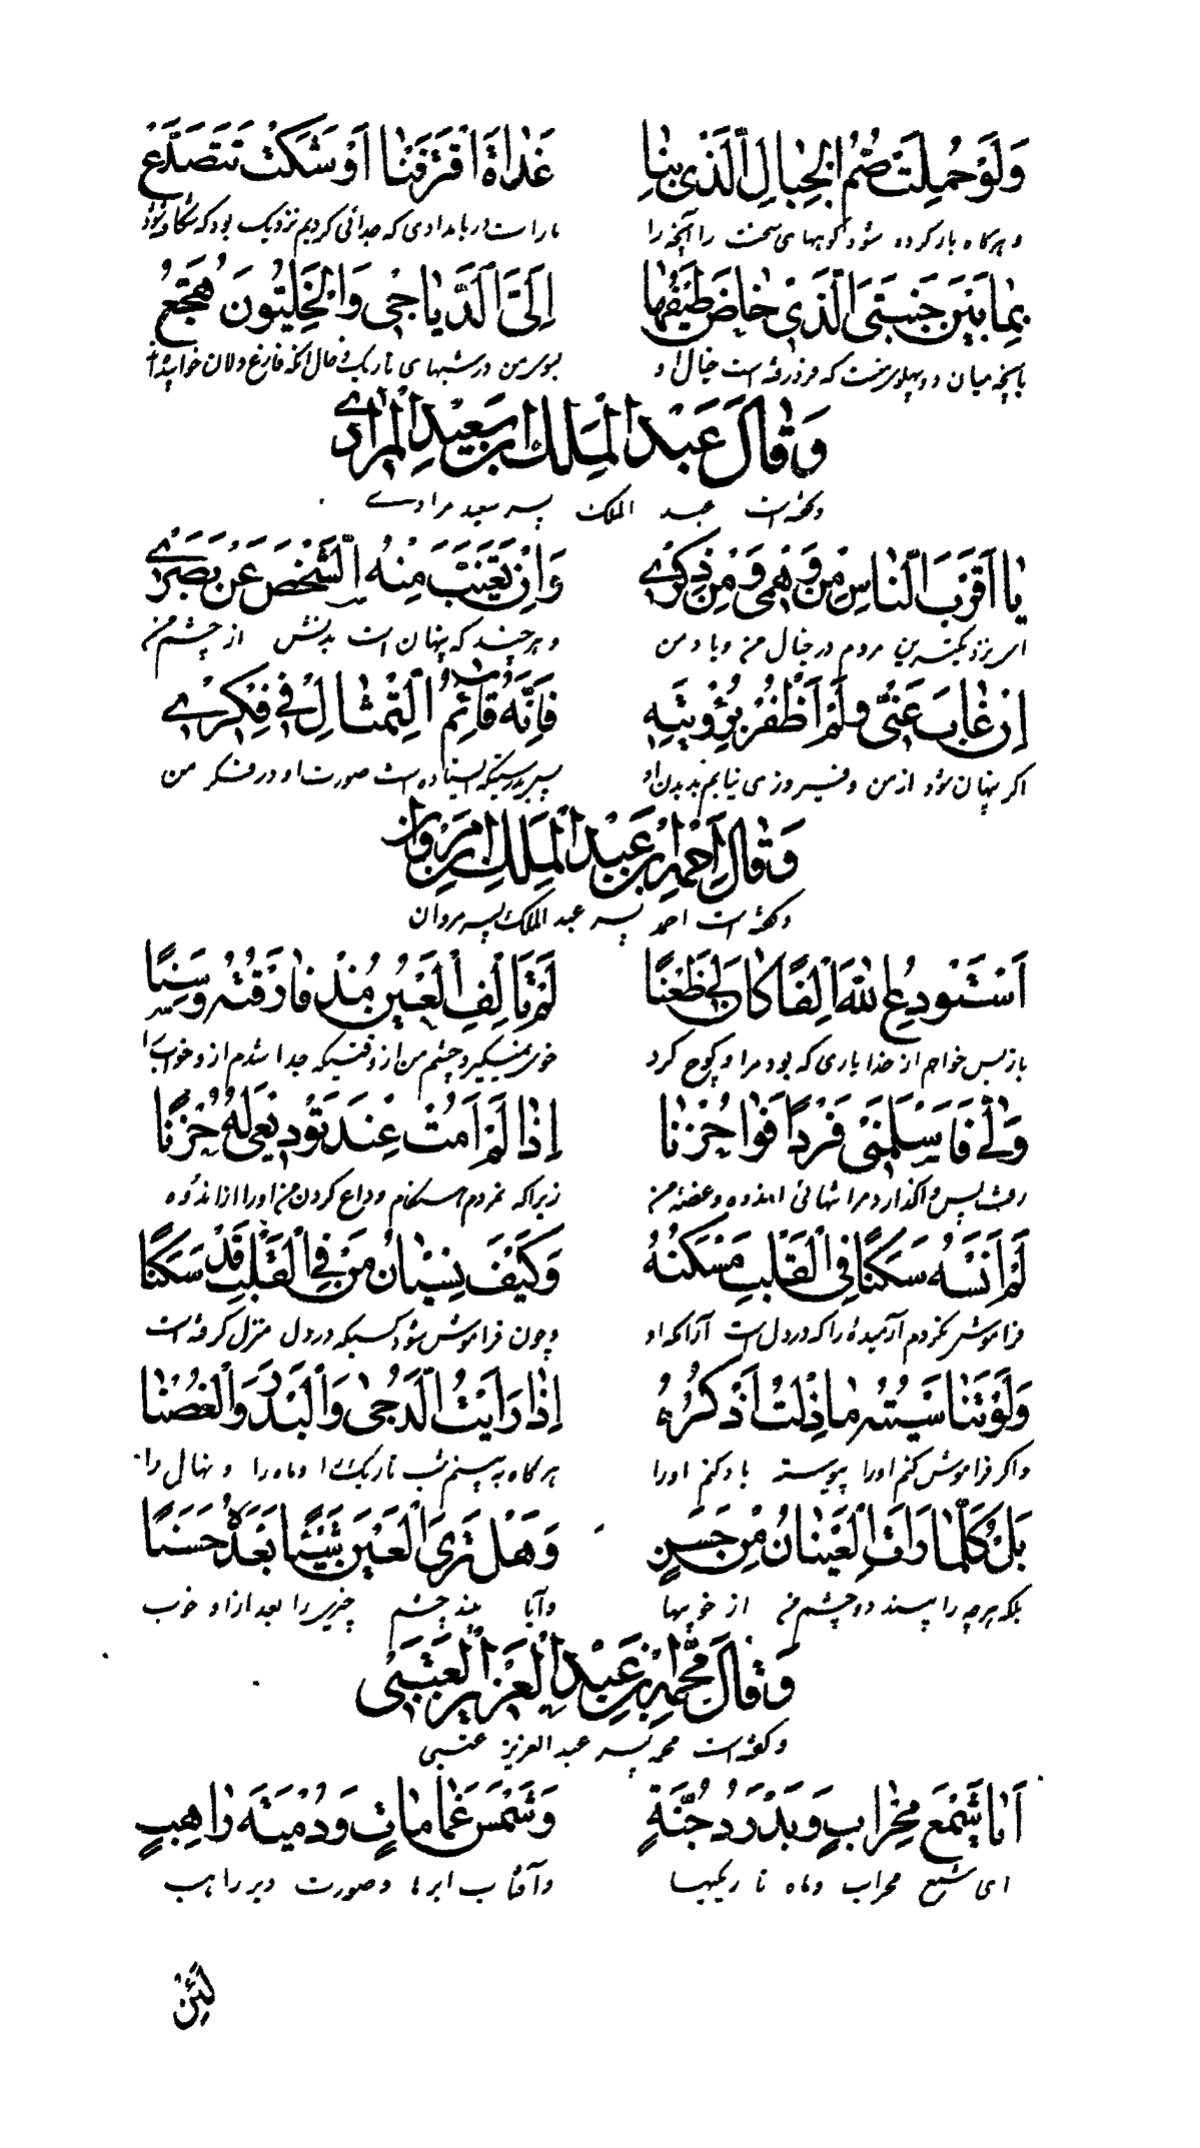 وَلَوْ حُمِلَتْ صُمُّ الْجِبَالِ الَّذِي بِنَا غَدَاةَ افْتَرَقْنَا أَوْشَكَتْ تَتَصَدَّعُ
و هرگاه بار کرده شود کوههای سخت را آنچه را ما راست در بامدادی که جدائی کردیم نزدیک بود که شکافته شود
بِمَا بَيْنَ جَنْبَيَّ الَّذِي خَاضَ طَيْفُهَا إِلَيَّ الدَّيَاجِي وَالْخَلِيُّونَ هُجَّعُ
بآنچه میان دو پهلوی منست که فرو رفته است خیال او بسوی من در شبهای تاریک و حال آنکه فارغ دلان
وَقَالَ عَبْدُ الْمَلِكِ ابْنُ سَعِيدٍ الْمُرَادِي
و گفته است عبد الملک پسر سعید مرادے
يَا أَقْرَبَ النَّاسِ مِنْ وَهْمِي وَمِنْ ذِكْرِي وَإِنْ تَغَيَّبَ مِنْهُ الشَّخْصُ عَنْ بَصَرِي
ای نزدیکترین مردم در خیال من و یاد من و هر چند که پنهان است بدنش از چشم من
إِنْ غَابَ عَنِّي وَلَمْ أَظْفَرْ بِرُؤْيَتِهِ فَإِنَّهُ قَائِمُ التِّمْثَالِ فِي فِكْرِي
اگر پنهان شود از من و فیروزی نیابم بدیدن او پس بدرستیکه ایستاده است صورت او در فکر من
وَقَالَ أَحْمَدُ ابْنُ عَبْدِ الْمَلِكِ ابْنِ مَرْوَانَ
و گفته است احمد پسر عبد الملک پسر مروان
أَسْتَوْدِعُ اللهَ إِلْفًا كَانَ لِي ظَعَنَا لَمْ تَأْلَفِ الْعَيْنُ مُنْذُ فَارَقْتُهُ وَسَنَا
باز پس خواهم از خدا یاری که بود مرا و کوچ کرد خوی نمیگیرد چشم من از وقتیکه جدا شدم ازو خواب را
وَلَّى فَأَسْلَمَنِي فَرْدًا فَوَا حُزْنَا إِذَا لَمْ أَمُتْ عِنْدَ تَوْدِيعِي لَهُ حُزْنًا
رفت پس وا گذارد مرا تنهائی اندوه و غصه من زیرا که نمردم هنگام وداع کردن من او را از اندوه
لَمْ أَنْسَهُ سَكَنًا فِي الْقَلْبِ مَسْكَنُهُ وَكَيْفَ نِسْيَانُ مَنْ فِي الْقَلْبِ قَدْ سَكَنَا
فراموش نکردم آرمیدهٔ را که در دل است آرامگه او و چون فراموش شود کسیکه در دل منزل گرفته است
وَلَوْ تَنَاسَيْتُهُ مَا زِلْتُ أَذْكُرُهُ إِذَا رَأَيْتُ الدُّجَى وَالْبَدْرَ وَالْغُصُنَا
و اگر فراموش کنم او را پیوسته یاد کنم او را هرگاه به بینم شب تاریک را و ماه را و نهال را
بَلْ كُلَّمَا رَاقَتِ الْعَيْنَانُ مِنْ حَسَنٍ وَهَلْ تَرَى الْعَيْنُ شَيْئًا بَعْدَهُ حَسَنًا
بلکه هر چه را پسندد دو چشم من از خوبیها و آیا بیند چشم چیزیرا بعد ازو خوب
وَقَالَ مُحَمَّدُ ابْنُ عَبْدِ الْعَزِيزِ الْعُتْبِيُّ
و گفته است محمد پسر عبد العزیز عتبی
أَيَا شَمْعَ مِحْرَابٍ وَبَدْرَ دُجُنَّةٍ وَشَمْسَ غَمَامَاتٍ وَدُمْيَةَ رَاهِبٍ
ای شمع محراب و ماه تاریکیها و آفتاب ابرها و صورت دیر راهب
لَئِنْ